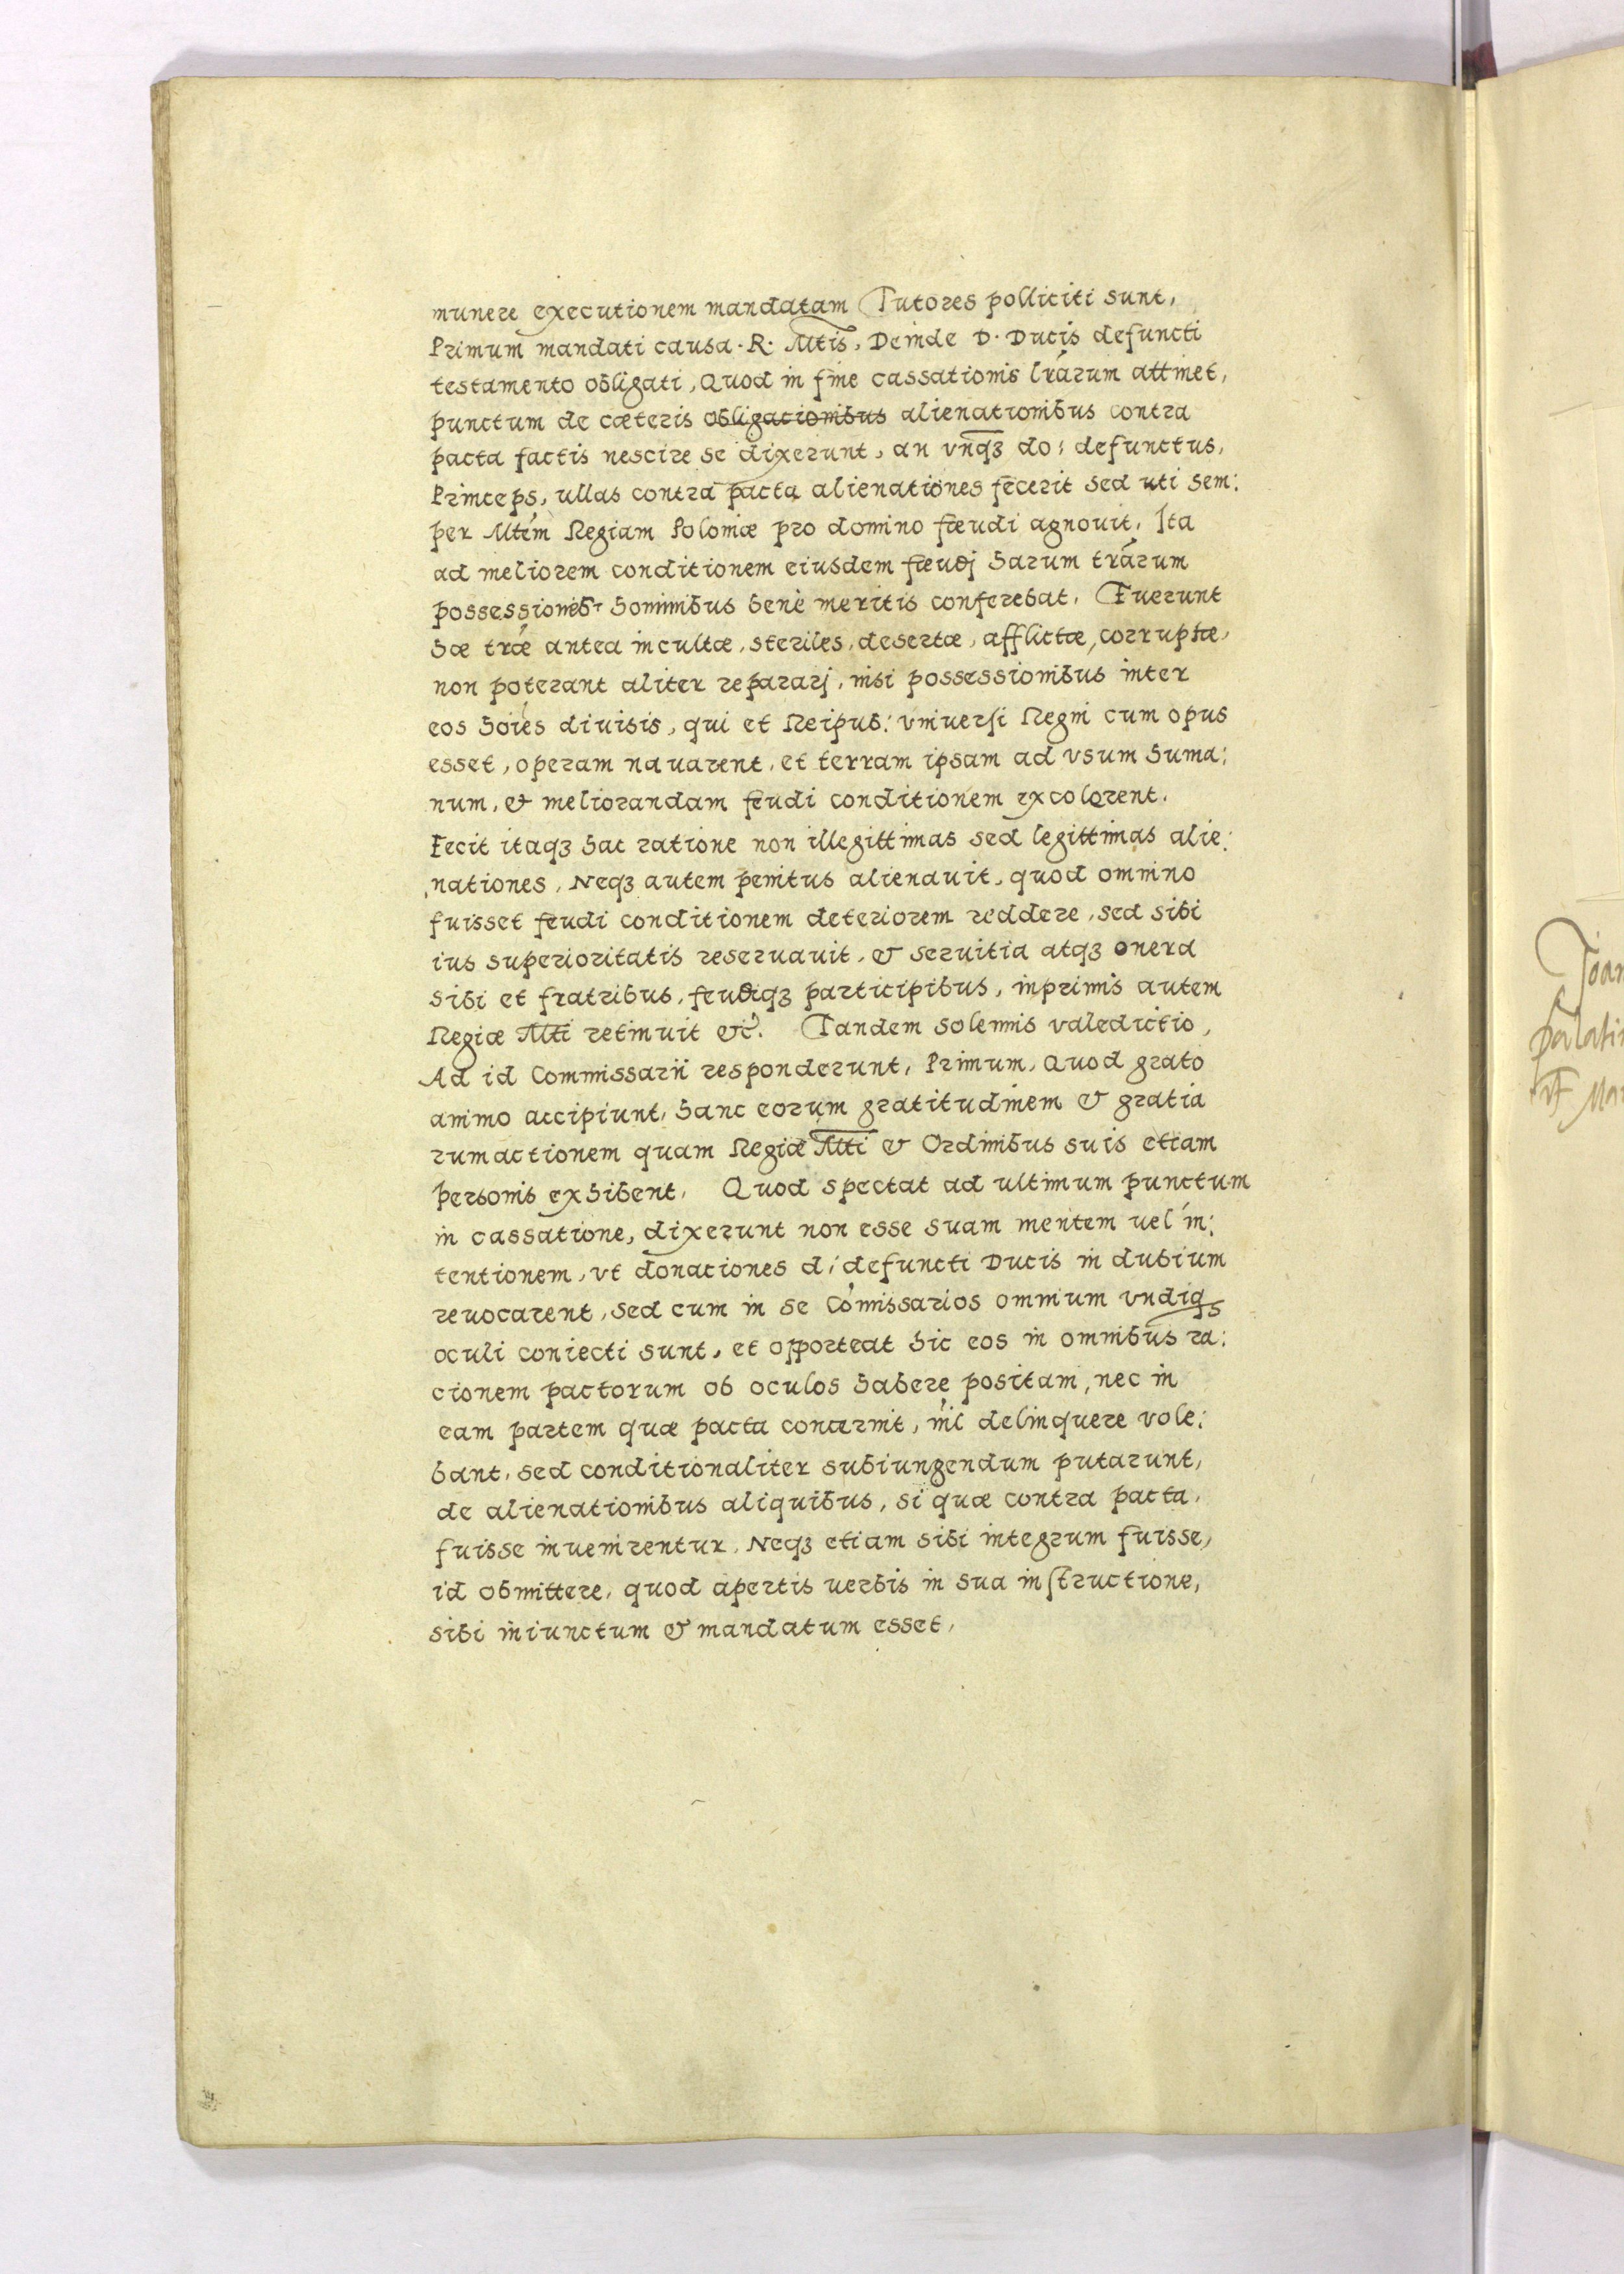 munere executionem mandatam Tutores polliciti sunt,
Primum mandati causa . R. Mtis, Deinde D. Ducis defuncti
testamento obligati, Quod in fine cassationis lrarum attinet,
punctum de cæteris obligationibus alienationibus contra
pacta factis nescire se dixerunt, an vnqȝ do: defunctus,
Princeps, ullas contra pacta alienationes fecerit sed uti sem:
per Mtem Regiam Poloniæ pro domino fœudi agnouit, Ita
ad meliorem conditionem eiusdem fœudj harum trarum
possessiones hominibus benè meritis conferebat. Fuerunt
hæ træ antea incultæ, steriles, desertæ, afflictæ, corruptæ,
non poterant aliter repararj, nisi possessionibus inter
eos hoies diuisis, qui et Reipub: vniuersi Regni cum opus
esset, operam nauarent, et terram ipsam ad vsum huma:
num, & meliorandam feudi conditionem excolerent.
Fecit itaqȝ hac ratione non illegittimas sed legittimas alie:
nationes, Neqȝ autem penitus alienauit, quod omnino
fuisset feudi conditionem deteriorem reddere, sed sibi
ius superioritatis reseruauit, & seruitia atqȝ onera
sibi et fratribus, feudiqȝ participibus, inprimis autem
Regiæ Mti retinuit &c. Tandem solennis valedictio,
Ad id Commissarii responderunt, Primum, Quod grato
animo accipiunt, hanc eorum gratitudinem & gratia
rumactionem quam Regiæ Mti & Ordinibus suis etiam
personis exhibent, Quod spectat ad ultimum punctum
in cassatione, dixerunt non esse suam mentem uel in:
tentionem, vt donationes d: defuncti Ducis in dubium
reuocarent, sed cum in se Comissarios omnium vndiqȝ
oculi coniecti sunt, et opporteat hic eos in omnibus ra:
cionem pactorum ob oculos habere positam, nec in
eam partem quæ pacta concernit, nil delinquere vole:
bant, sed conditionaliter subiungendum putarunt,
de alienationibus aliquibus, si quæ contra pacta,
fuisse inuenirentur, Neqȝ etiam sibi integrum fuisse,
id obmittere, quod apertis uerbis in sua instructione,
sibi iniunctum & mandatum esset,